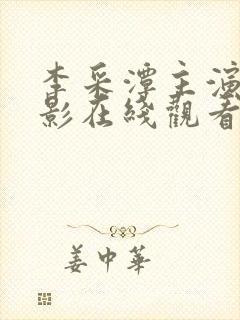 李采潭主演
影在线觀看
姜中華